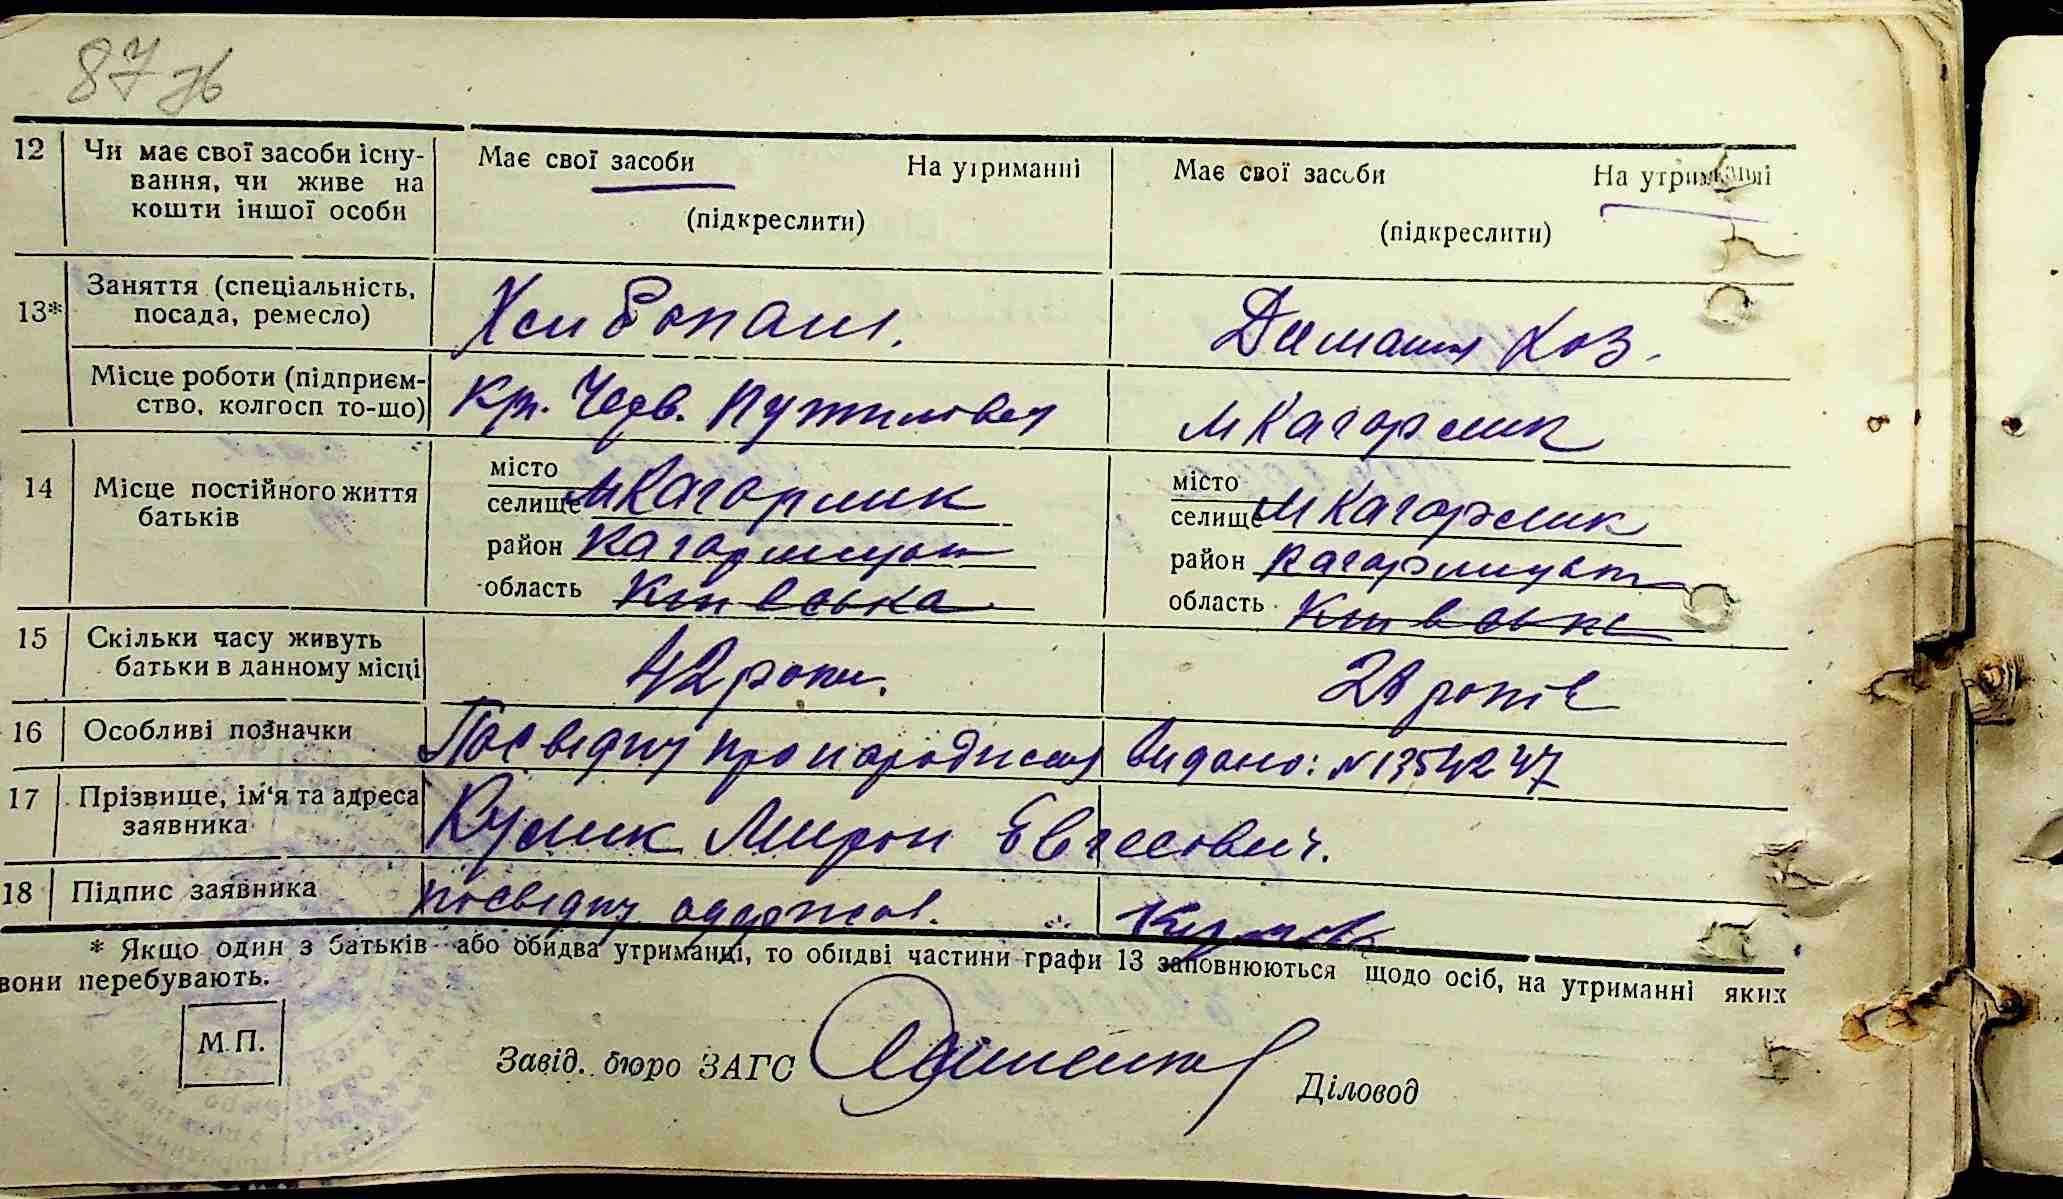 87 зв
12 Чи має свої засоби існу-
вання, чи живе на
кошти іншої особи
Має свої засоби На утриманні
(підкреслити)
Має свої засоби На утриманні
(підкреслити)
13* Заняття (спеціальність,
посада, ремесло)
Хлібопаш. Домашн Хоз.
Місце роботи (підприєм-
ство, колгосп то-що)
Черв. м Кагорлик
14 Місце постійного життя
батьків
місто
селище м Кагорлик
район Кагорлицьк
область Київська
місто
селище м Кагорлик
район Кагорлицьк
область Київськ
15 Скільки часу живуть
батьки в данному місці
42 роки. років
16 Особливі позначки
Посвідку про народження видано: № 1354247
17 Прізвище, ім'я та адреса
заявника
Кулик Мирон
18 Підпис заявника
посвідку одержав. Кулик
* Якщо один з батьків або обидва утриманці, то обидві частини графи 13 заповнюються щодо осіб, на утриманні яких
вони перебувають.
М. П.
Завід. бюро ЗАГС
Діловод